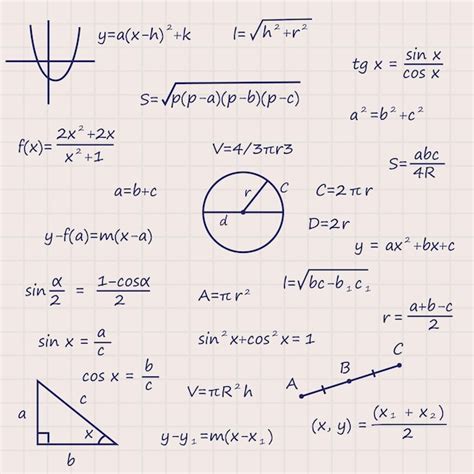 y=a(x-h)²+k
l=√h²+r²
tg x = sin x / cos x
S=√p(p-a)(p-b)(p-c)
a²=b²+c²
f(x)= 2x²+2x / x²+1
V=4/3πr3
S= abc / 4R
a=b+c
r
C
d
C=2πr
D=2r
y-f(a)=m(x-a)
y = ax²+bx+c
sin α/2 = 1-cosα / 2
A=πr²
l=√bc-b₁c₁
r = a+b-c / 2
sin x = a/c
sin²x+cos²x=1
cos x = b/c
A
B
C
a
c
x
b
V=πR²h
y-y₁=m(x-x₁)
(x, y) = (x₁ + x₂) / 2